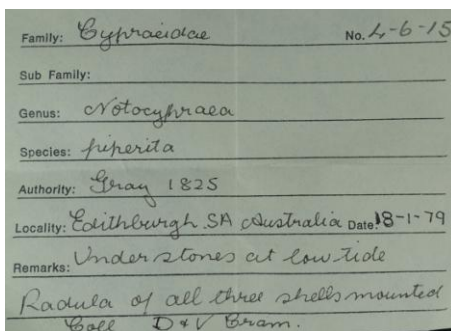 Family: Cypraeidae No. 4-6-15
Sub Family:
Genus: Notocypraea
Species: piperita
Authority: Gray 1825
Locality: Edithburgh SA Australia Date: 18-1-79
Remarks: Under stones at low tide
Radula of all three shells mounted
Coll D & V Bram.